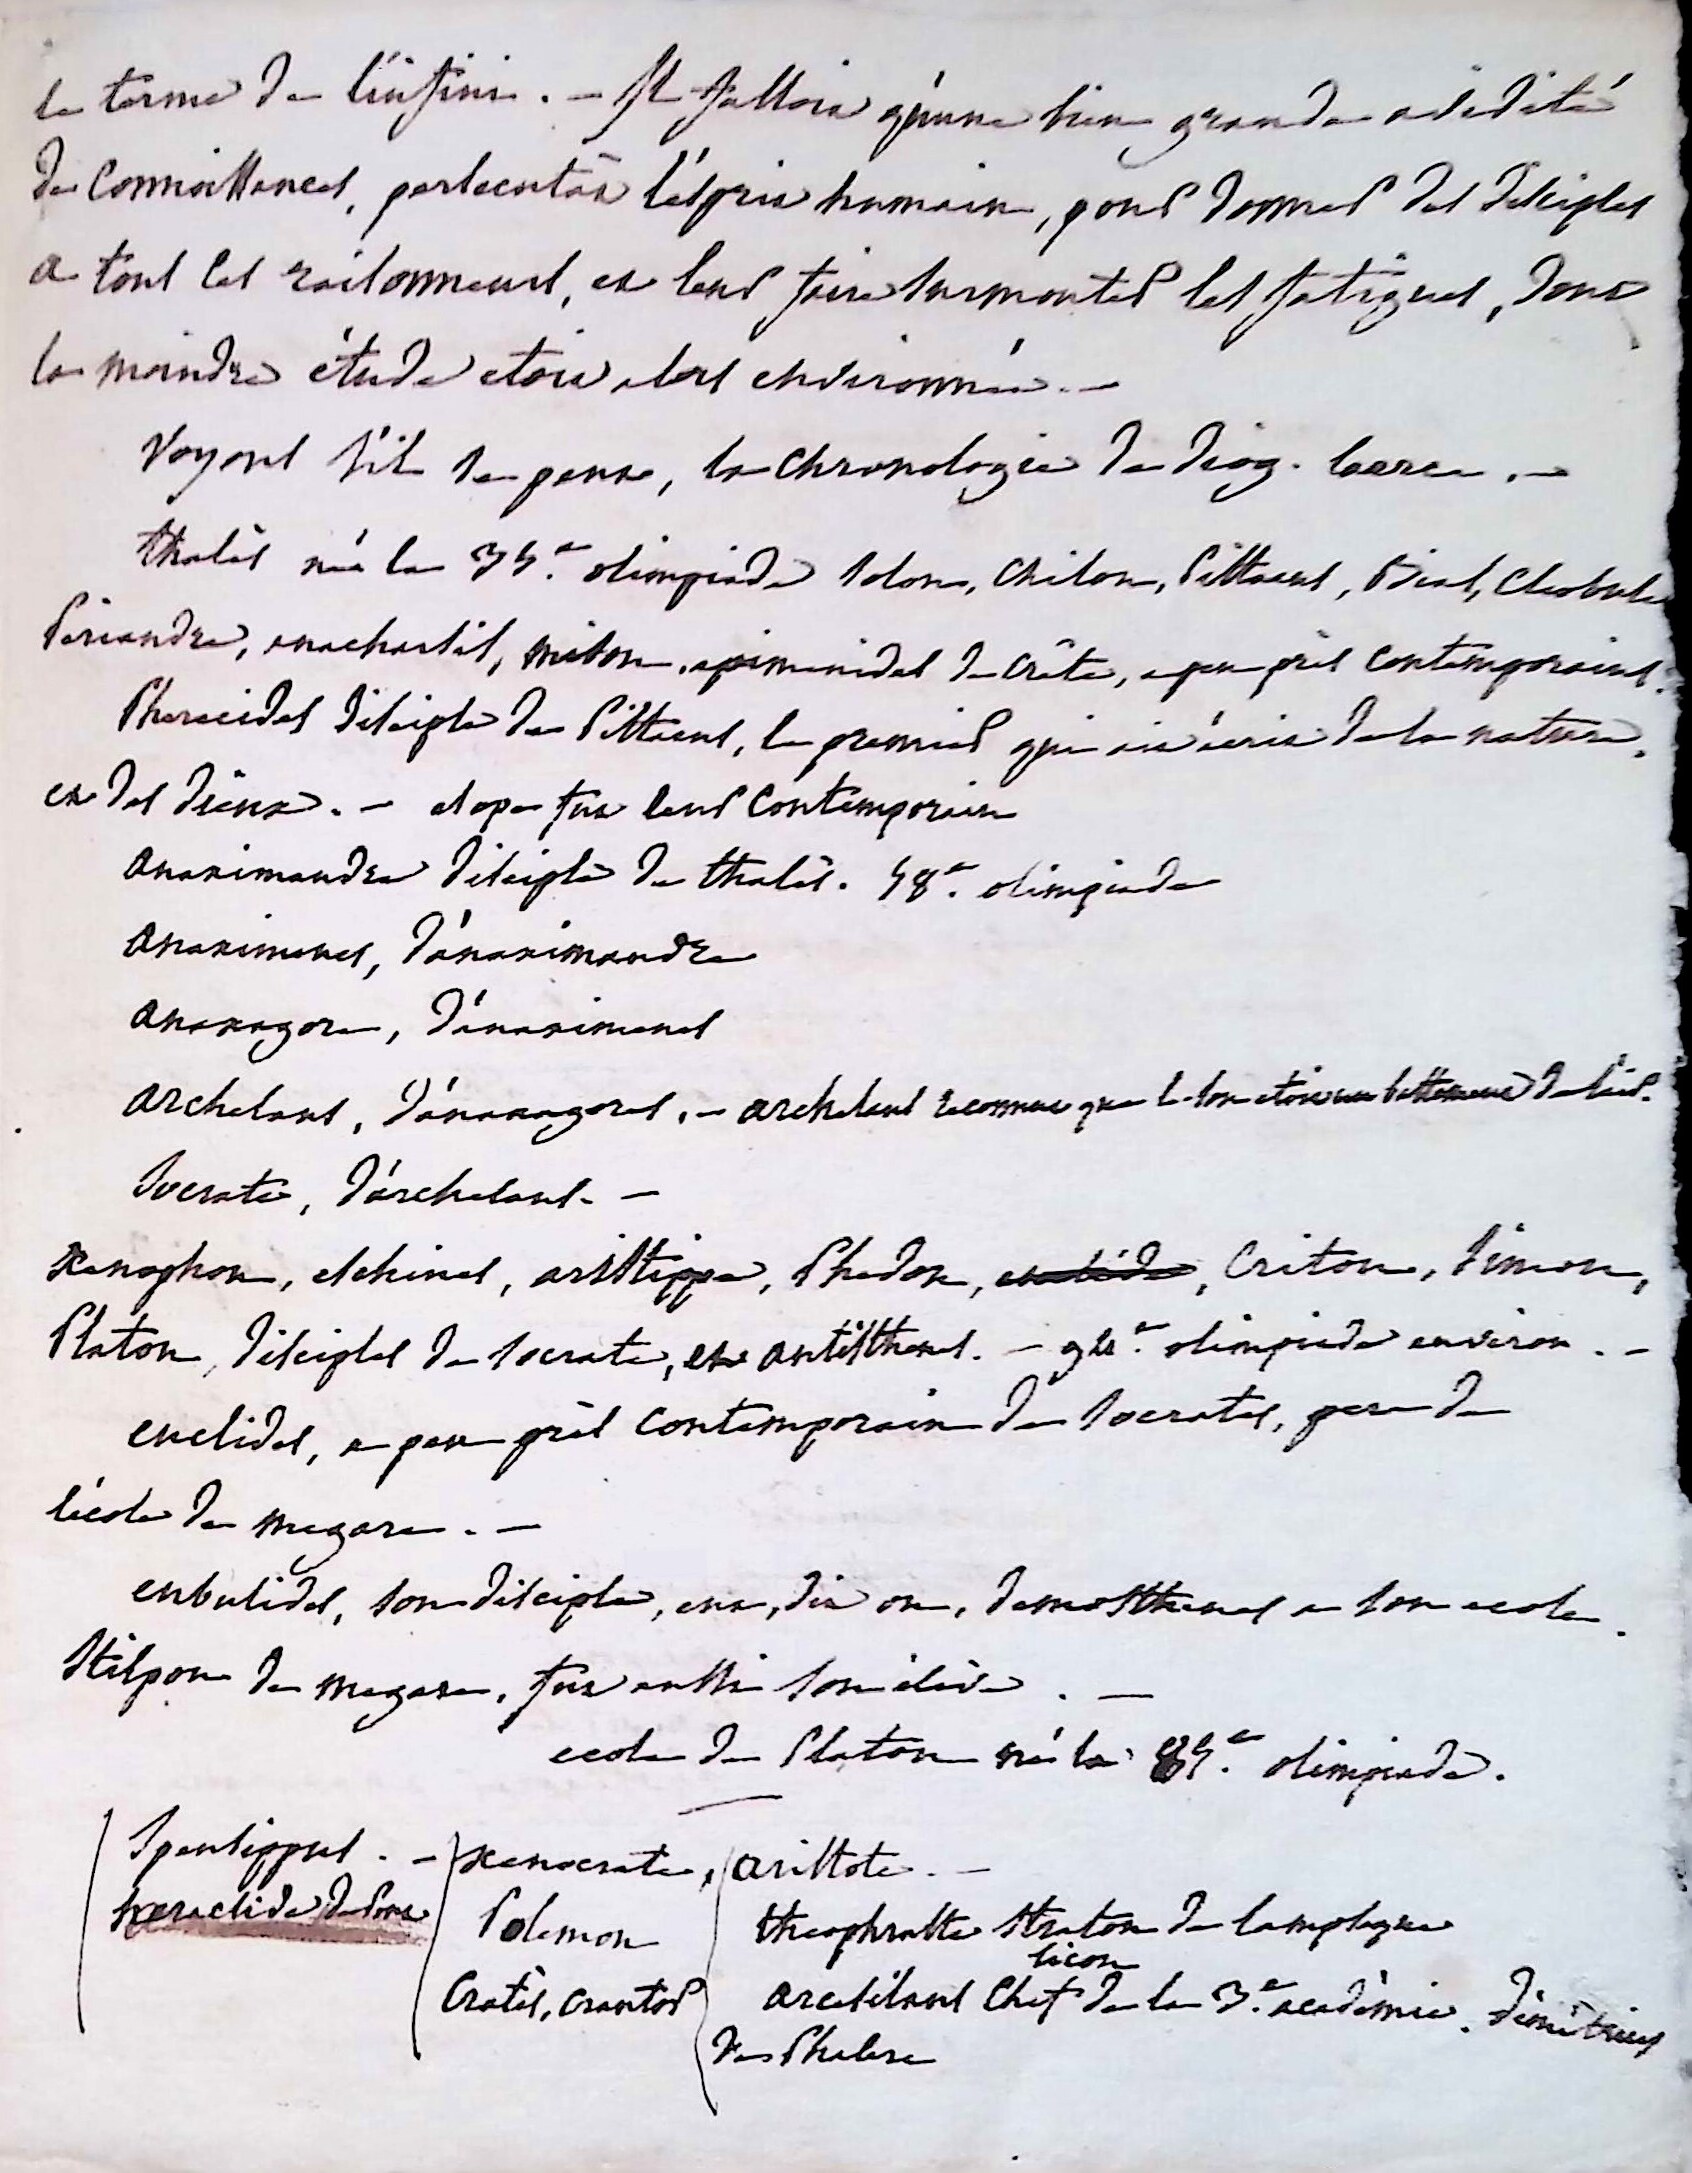 le terme de l'infini. - Il falloit qu'une bien grande avidité
de connoissances, persecutât l'esprit humain, pour donner des disciples
a tous ces raisonneurs, et leur faire surmonter les fatigues, dont
la moindre étude etoit alors environnée. -
Voyons s'il se peut, la chronologie de diog. laerce. -
thalès né la 35.e olimpiade solon, chilon, Pittacus, Bias, Cleobule
Periandre, anacharsis, mison, epimenides de crête, a peu près contemporains.
Pherecides disciple de Pittacus, le premier qui ait écrit de la nature,
et des dieux. - esope fut leur contemporain
anaximandre disciple de thalès. 48.e olimpiade
anaximenes, d'anaximandre
anaxagore, d'anaximenes
archelaus, d'anaxagores. - archelaus reconnut que le son etoit un battement de l'air.
socrate, d'archelaus. -
xenophon, eschines, aristippe, Phedon, euclide, Criton, simon,
Platon, disciples de socrate, et antisthenes. - 95.e olimpiade environ. -
euclides, a peu près contemporain de socrates, pere de
l'école de megare. -
eubulides, son disciple, eut, dit on, demosthenes a son ecole.
stilpon de megare, fut aussi son élève. -
ecole de Platon né la 85.e olimpiade.
speusippus. - xenocrate, aristote. -
heraclide de Pont Polemon theophraste straton de lampsaque
licon
Cratès, crantor arcesilaus chef de la 3.e académie. démétrius
de Phalere